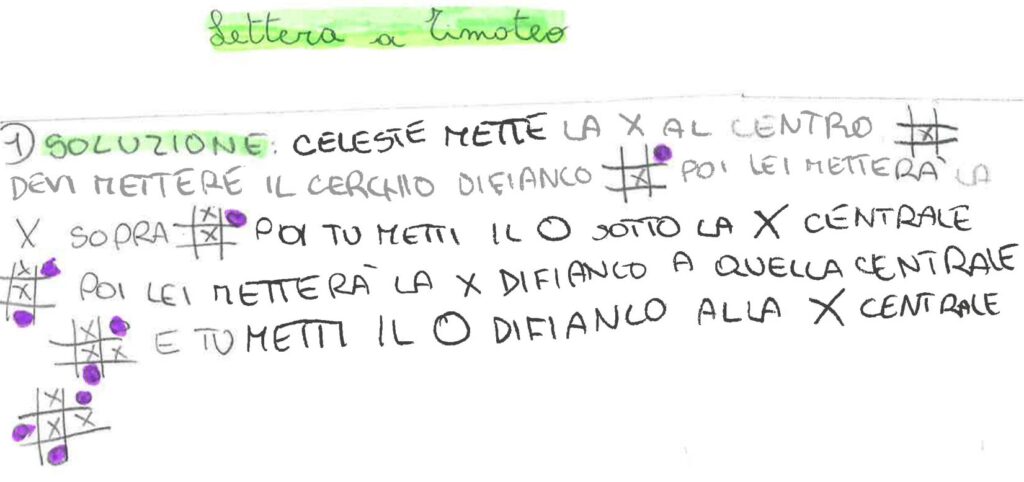 Lettera a Timoteo
1) SOLUZIONE: CELESTE METTE LA X AL CENTRO
DEVI METTERE IL CERCHIO DIFIANCO POI LEI METTERÀ LA
X SOPRA POI TU METTI IL O SOTTO LA X CENTRALE
POI LEI METTERÀ LA X DIFIANCO A QUELLA CENTRALE
E TU METTI IL O DIFIANCO ALLA X CENTRALE